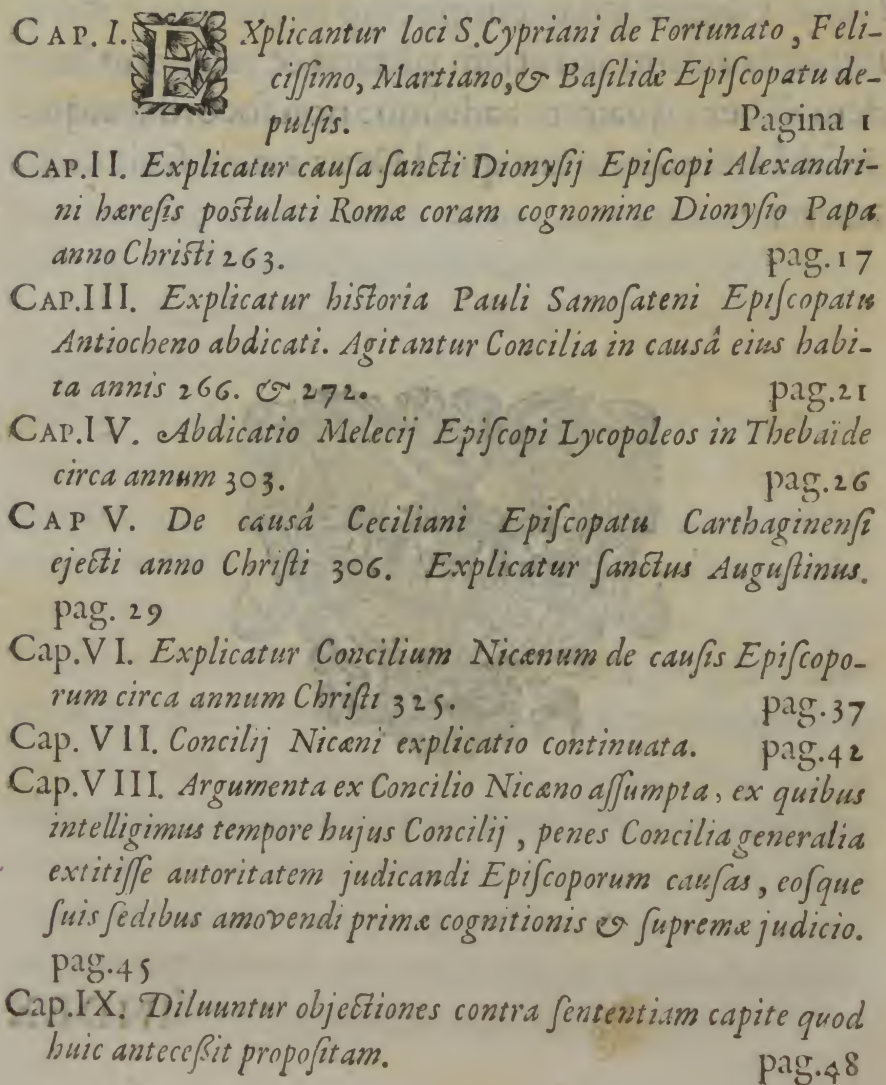 CAP. I. EXplicantur loci S. Cypriani de Fortunato, Feli-
ciſſimo, Martiano, & Baſilide Epiſcopatu de-
pulſis. Pagina 1
CAP. II. Explicatur cauſa ſancti Dionyſij Epiſcopi Alexandri-
ni hæreſis poſtulati Romæ coram cognomine Dionyſio Papa
anno Chriſti 263. pag. 17
CAP. III. Explicatur hiſtoria Pauli Samoſateni Epiſcopatu
Antiocheno abdicati. Agitantur Concilia in cauſâ eius habi-
ta annis 266. & 272. pag. 21
CAP. IV. Abdicatio Melecij Epiſcopi Lycopoleos in Thebaïde
circa annum 303. pag. 26
CAP V. De cauſâ Ceciliani Epiſcopatu Carthaginenſi
ejecti anno Chriſti 306. Explicatur ſanctus Auguſtinus.
pag. 29
Cap. VI. Explicatur Concilium Nicænum de cauſis Epiſcopo-
rum circa annum Chriſti 325. pag. 37
Cap. VII. Concilij Nicæni explicatio continuata. pag. 42
Cap. VIII. Argumenta ex Concilio Nicæno aſſumpta, ex quibus
intelligimus tempore hujus Concilij, penes Concilia generalia
extitiſſe autoritatem judicandi Epiſcoporum cauſas, eoſque
ſuis ſedibus amovendi primæ cognitionis & ſupremæ judicio.
pag. 45
Cap. IX. Diluuntur objectiones contra ſententiam capite quod
huic anteceſſit propoſitam. pag. 48